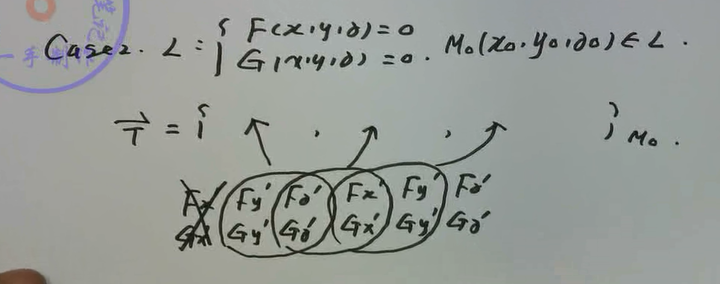 Case2. L: { F(x,y,z)=0
G(x,y,z)=0. M₀(x₀,y₀,z₀)∈L.
T⃗ = { , , }M₀.
Fx' Fy' Fz' Fx' Fy' Fz'
Gx' Gy' Gz' Gx' Gy' Gz'